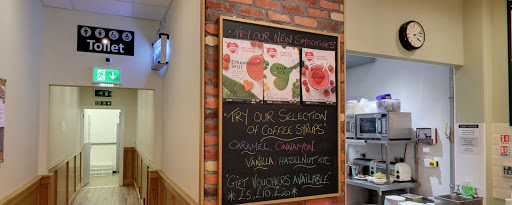 Toilet
TRY OUR NEW SMOOTHIES
STRAWBERRY
SPLIT
TRY OUR SELECTION
OF COFFEE SYRUPS
CARAMEL CINNAMON
VANILLA, HAZELNUT ETC
GIFT VOUCHERS AVAILABLE
£5, £10, £20